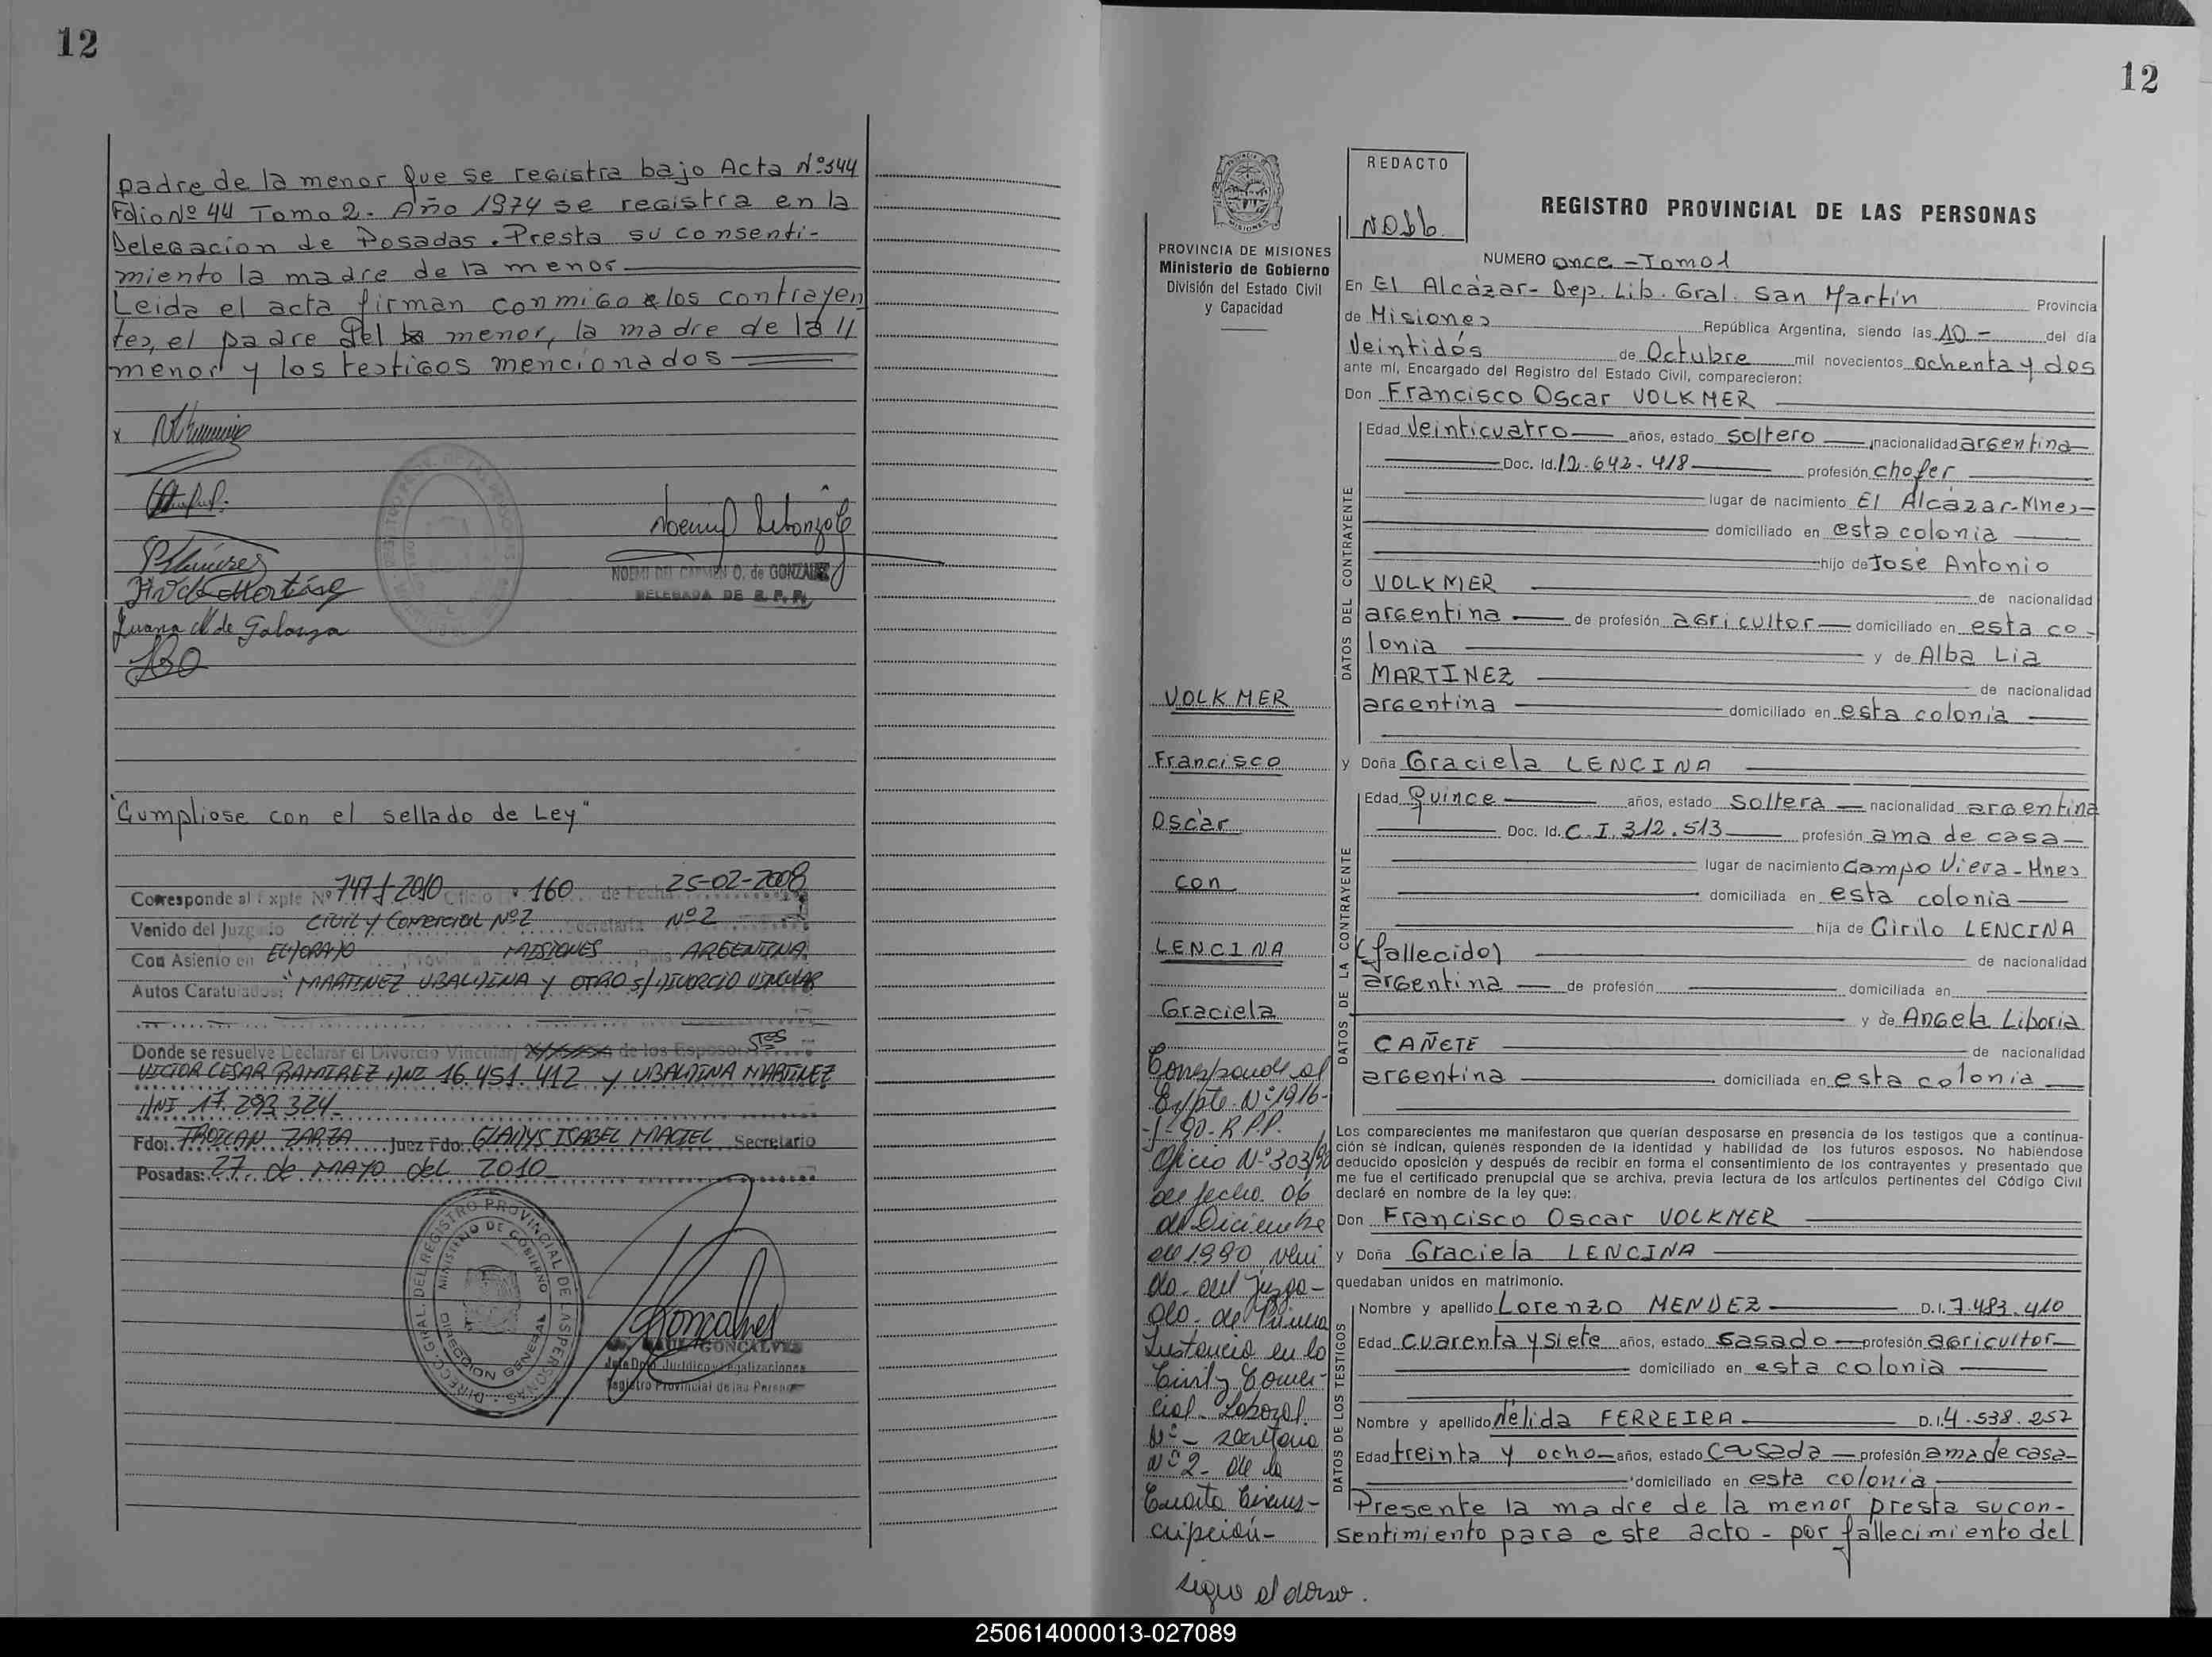 12
padre de la menor que se registra bajo Acta Nº 344
Folio Nº 44 Tomo 2. Año 1974 se registra en la
Delegacion de Posadas. Presta su consenti-
miento la madre de la menor
Leida el acta firman conmigo los contrayen
tes, el padre del menor, la madre de la
menor y los testigos mencionados
x
Juana M de Galarza
NOEMI DEL CARMEN O. de GONZALEZ
DELEGADA DE R. P. P.
"Cumpliose con el sellado de Ley"
Corresponde al Expte Nº 747-f-2010 Oficio Nº 160 de Fecha 25-02-2008
Venido del Juzgado CIVIL y COMERCIAL Nº2 Secretaria Nº 2
Con Asiento en ELDORADO, Provincia MISIONES, País ARGENTINA
Autos Caratulados: "MARTINEZ UBALDINA y OTRO s/DIVORCIO VINCULAR
Donde se resuelve Declarar el Divorcio Vincular de los Esposos
VICTOR CESAR RAMIREZ DNI 16.451.412 y UBALDINA MARTINEZ
DNI 17.293.324
Fdo: ZARZA Juez Fdo: GLADYS ISABEL MACIEL Secretario
Posadas: 27 de MAYO del 2010
DIRECC. GRAL. DEL REGISTRO PROVINCIAL DE LAS PERSONAS
MINISTERIO DE GOBIERNO
DIRECCION GENERAL
GONCALVES
Jefe Dpto. Jurídico y Legalizaciones
Registro Provincial de las Personas
12
PROVINCIA DE MISIONES
Ministerio de Gobierno
División del Estado Civil
y Capacidad
REDACTO
REGISTRO PROVINCIAL DE LAS PERSONAS
NUMERO once - Tomo 1
En El Alcázar - Dep. Lib. Gral. San Martín Provincia
de Misiones República Argentina, siendo las 10 - del día
Veintidós de Octubre mil novecientos ochenta y dos
ante mí, Encargado del Registro del Estado Civil, comparecieron:
Don Francisco Oscar VOLKMER
DATOS DEL CONTRAYENTE
Edad Veinticuatro años, estado soltero nacionalidad argentina
Doc. Id. 12.642.418 profesión chofer
lugar de nacimiento El Alcázar-Mnes-
domiciliado en esta colonia
hijo de José Antonio
VOLKMER de nacionalidad
argentina de profesión agricultor domiciliado en esta co-
lonia y de Alba Lia
MARTINEZ de nacionalidad
argentina domiciliado en esta colonia
y Doña Graciela LENCINA
DATOS DE LA CONTRAYENTE
Edad Quince años, estado Soltera nacionalidad argentina
Doc. Id. C.I. 312.513 profesión ama de casa
lugar de nacimiento Campo Viera - Mnes
domiciliada en esta colonia
hija de Cirilo LENCINA
(fallecido) de nacionalidad
argentina de profesión domiciliada en
y de Angela Liboria
CAÑETE de nacionalidad
argentina domiciliada en esta colonia
Los comparecientes me manifestaron que querían desposarse en presencia de los testigos que a continua-
ción se indican, quienes responden de la identidad y habilidad de los futuros esposos. No habiéndose
deducido oposición y después de recibir en forma el consentimiento de los contrayentes y presentado que
me fue el certificado prenupcial que se archiva, previa lectura de los artículos pertinentes del Código Civil
declaré en nombre de la ley que:
Don Francisco Oscar VOLKMER
y Doña Graciela LENCINA
quedaban unidos en matrimonio.
DATOS DE LOS TESTIGOS
Nombre y apellido Lorenzo MENDEZ D.I. 7.483.410
Edad Cuarenta y siete años, estado casado profesión agricultor
domiciliado en esta colonia
Nombre y apellido Nélida FERREIRA D.I. 4.538.257
Edad treinta y ocho años, estado casada profesión ama de casa-
domiciliado en esta colonia
Presente la madre de la menor presta su con-
sentimiento para este acto - por fallecimiento del
VOLKMER
Francisco
Oscar
con
LENCINA
Graciela
Corresponde al
Expte. Nº 1916-
-90-R.P.P.
Oficio Nº 303/90
de fecha 06
de Diciembre
de 1990 veni
do del Juzga-
do de Primera
Instancia en lo
Civil y Comer-
cial. Laboral.
Nº - Secretaria
Nº 2 - de la
Cuarta Circuns-
cripción-
sigue al dorso.
250614000013-027089